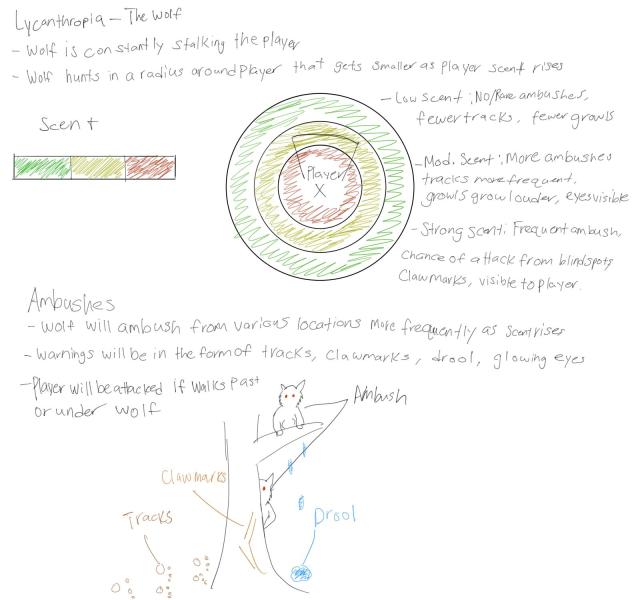 Lycanthropia - The Wolf
- Wolf is constantly stalking the player
- Wolf hunts in a radius around player that gets smaller as player scent rises
Scent
Player
X
- Low Scent: No/Rare ambushes,
fewer tracks, fewer growls
- Mod. Scent: More ambushes
tracks more frequent,
growls grow louder, eyes visible
- Strong scent: Frequent ambush,
chance of attack from blindspots
Clawmarks, visible to player.
Ambushes
- Wolf will ambush from various locations more frequently as scent rises
- Warnings will be in the form of tracks, clawmarks, drool, glowing eyes
- Player will be attacked if walks past
or under wolf
Ambush
Clawmarks
Tracks
Drool